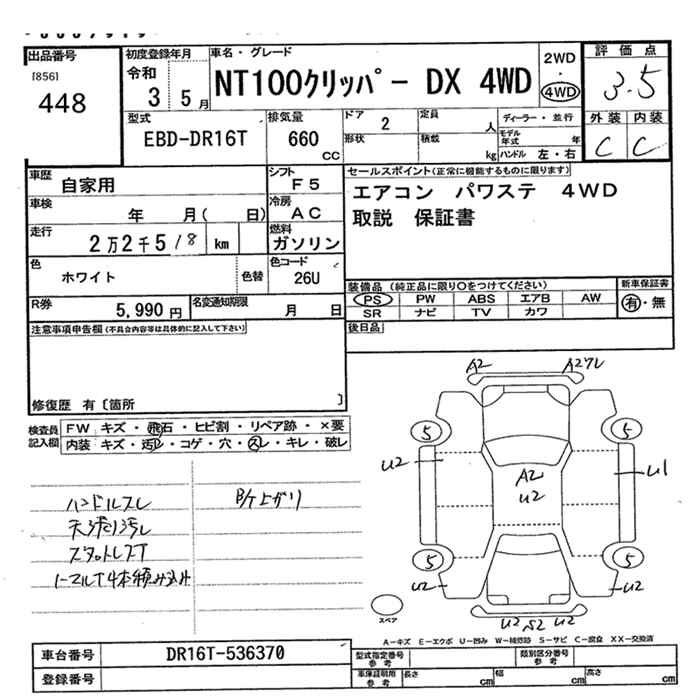 出品番号
[856]
448
初度登録年月
令和
3 5月
車名・グレード
NT100クリッパー DX 4WD
2WD
・
4WD
評価点
3.5
外装 内装
C C
型式
EBD-DR16T
排気量
660
CC
ドア
2
形状
定員
人
積載
kg
ディーラー・並行
モデル年式 年
ハンドル 左・右
車歴
自家用
車検
年 月( 日)
走行
2万2千518 km
色
ホワイト
色替
シフト
F5
冷房
AC
燃料
ガソリン
色コード
26U
R券
5,990円
名変通知期限
月 日
セールスポイント(正常に機能するものに限ります)
エアコン パワステ 4WD
取説 保証書
装備品 (純正品に限り○をつけてください)
PS PW ABS エアB AW
SR ナビ TV カワ
新車保証書
有・無
後日品
注意事項申告欄(不具合内容等は具体的に記入して下さい)
修復歴 有〔箇所 〕
検査員
記入欄
FW キズ・飛石・ヒビ割・リペア跡・×要
内装 キズ・汚レ・コゲ・穴・スレ・キレ・破レ
ハンドルスレ
天張り汚レ
スタットレスT
ノーマルT4本積み込み
B/ケ上がり
A2
A2ワレ
5
5
U2
U1
A2
U2
5
5
U2
U2
U2 S2 U2
スペア
A-キズ E-エクボ U-凹み W-補修跡 S-サビ C-腐食 XX-交換済
車台番号
DR16T-536370
登録番号
型式指定番号
参考
類別区分番号
参考
車庫証明用
参考
長さ cm
幅 cm
高さ cm